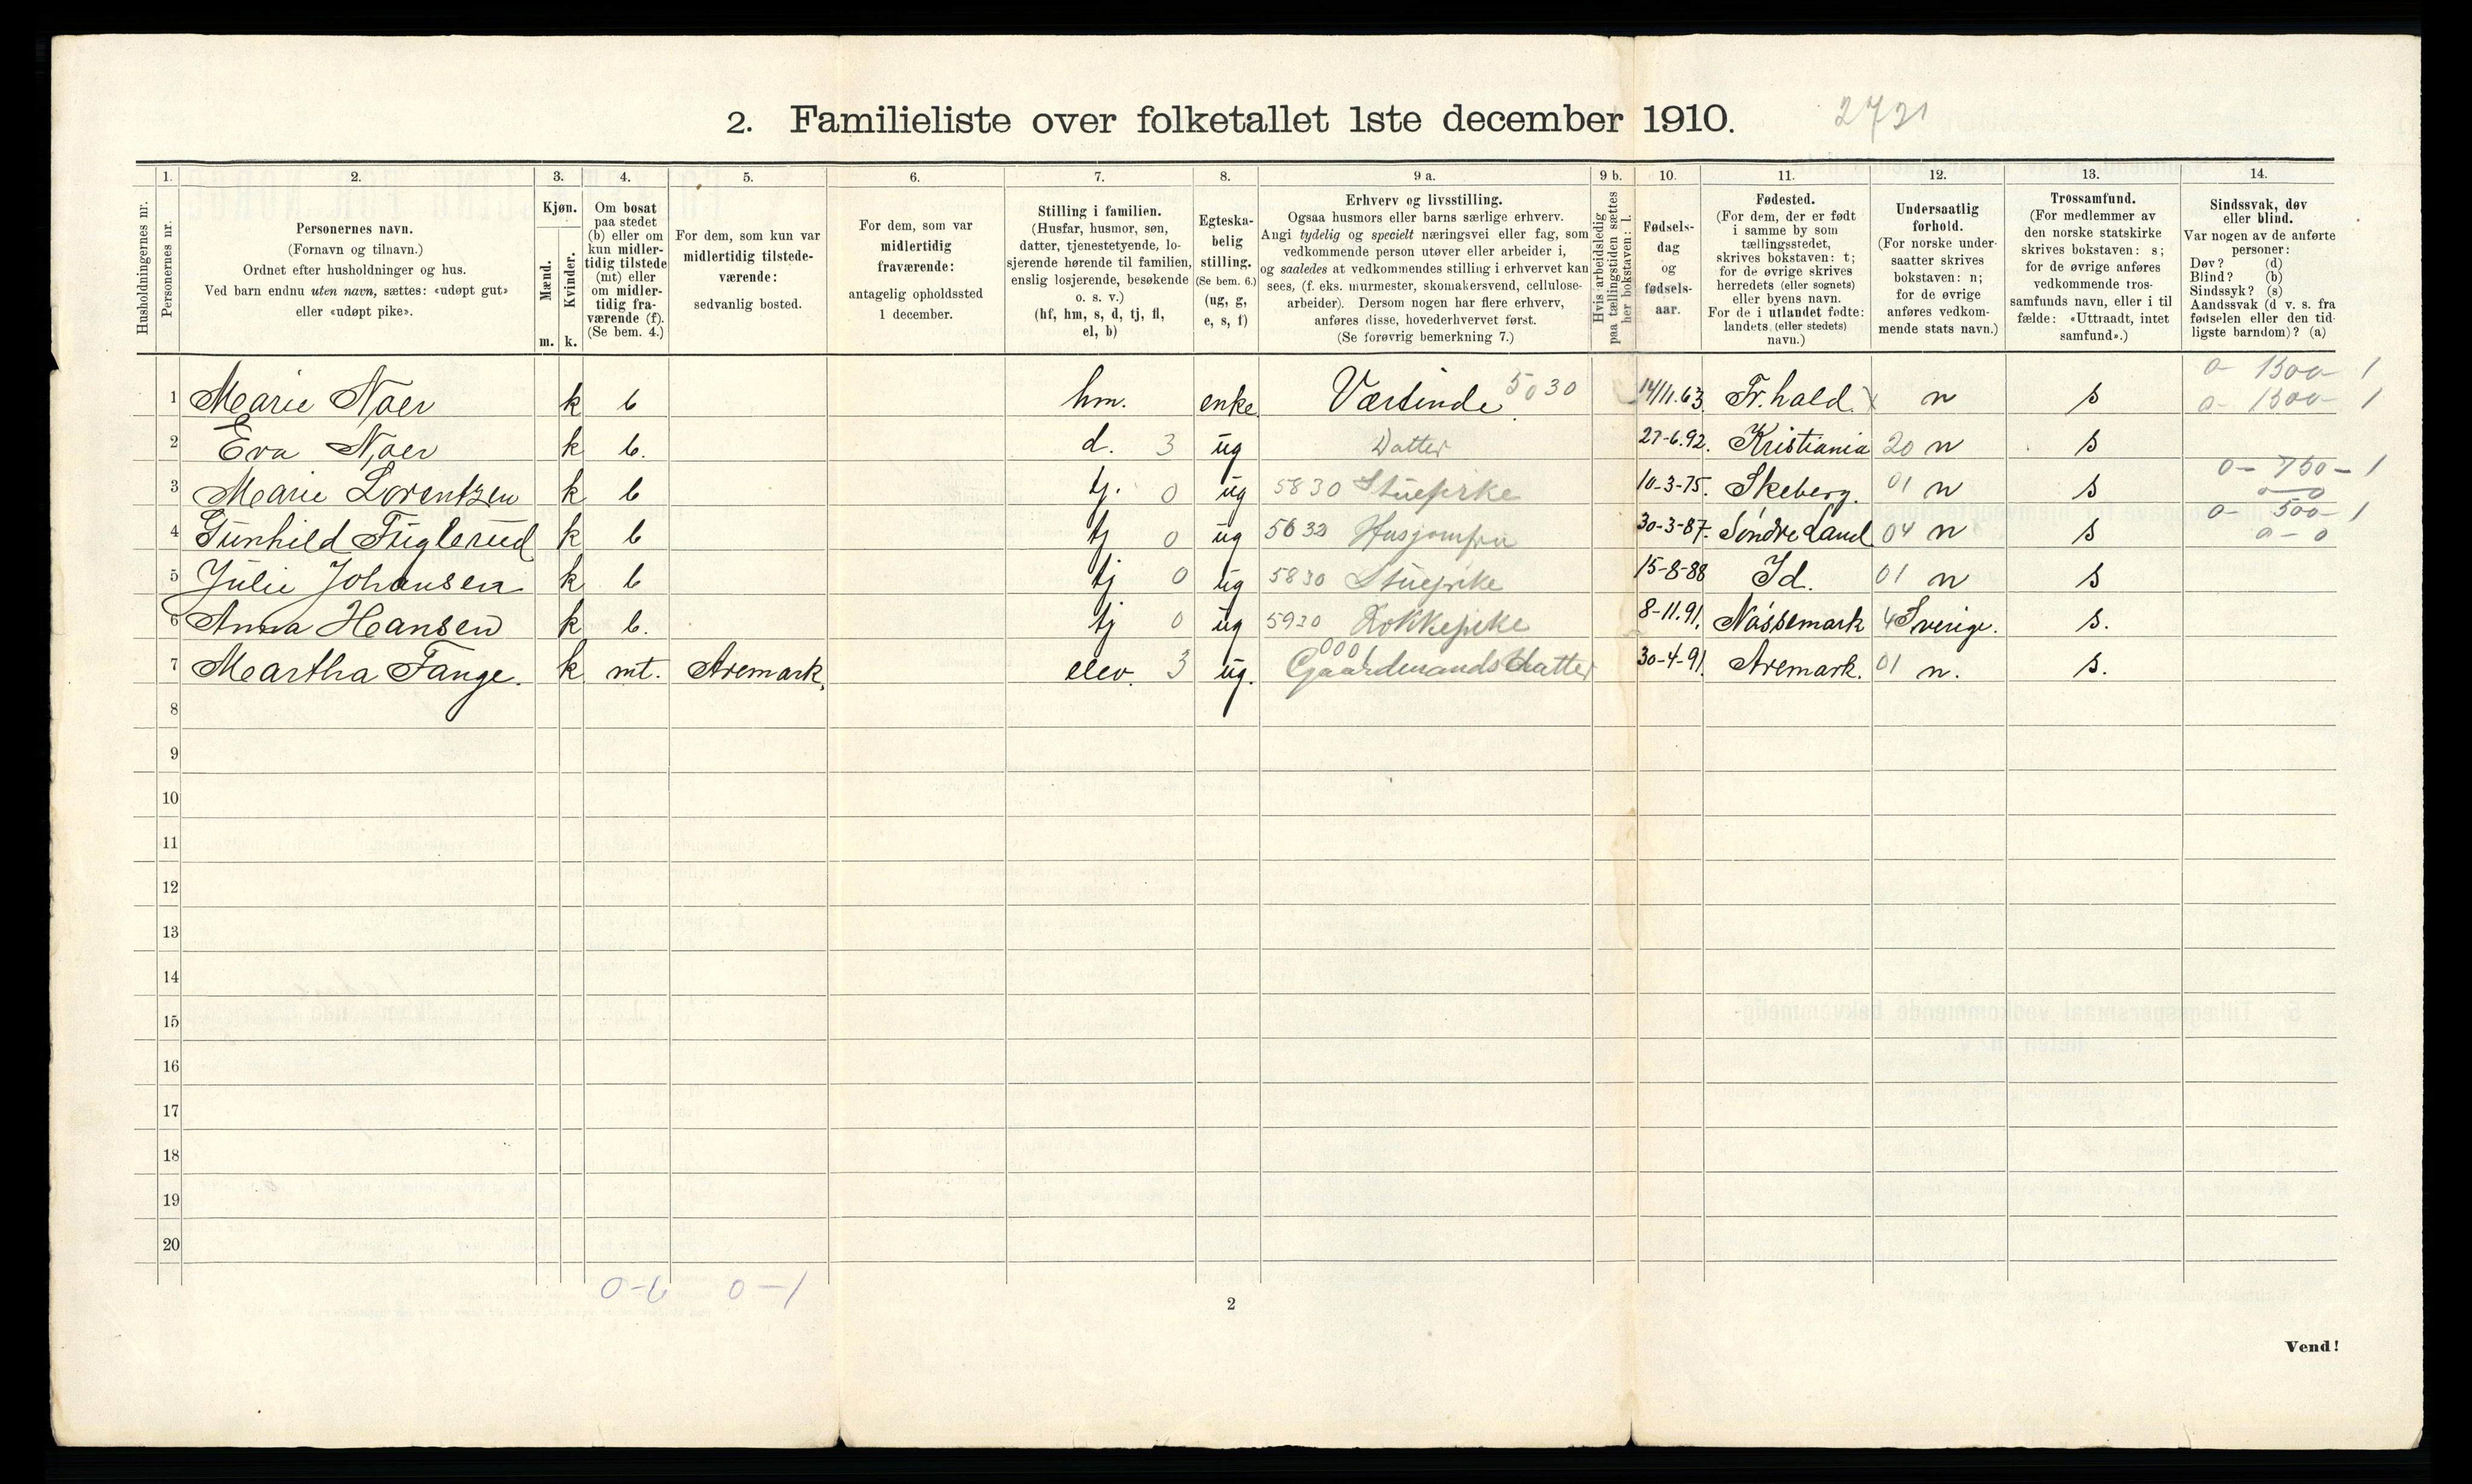 2. Familieliste over folketallet 1ste december 1910. 2721
Husholdningernes nr.
1.
Personernes nr.
2.
Personernes navn.
(Fornavn og tilnavn.)
Ordnet efter husholdninger og hus.
Ved barn endnu uten navn, sættes: «udøpt gut»
eller «udøpt pike».
3.
Kjøn.
Mænd.
Kvinder.
m. k.
4.
Om bosat
paa stedet
(b) eller om
kun midler-
tidig tilstede
(mt) eller
om midler-
tidig fra-
værende (f).
(Se bem. 4.)
5.
For dem, som kun var
midlertidig tilstede-
værende:
sedvanlig bosted.
6.
For dem, som var
midlertidig
fraværende:
antagelig opholdssted
1 december.
7.
Stilling i familien.
(Husfar, husmor, søn,
datter, tjenestetyende, lo-
sjerende hørende til familien,
enslig losjerende, besøkende
o. s. v.)
(hf, hm, s, d, tj, fl,
el, b)
8.
Egteska-
belig
stilling.
(Se bem. 6.)
(ug, g,
e, s, f)
9 a.
Erhverv og livsstilling.
Ogsaa husmors eller barns særlige erhverv.
Angi tydelig og specielt næringsvei eller fag, som
vedkommende person utøver eller arbeider i,
og saaledes at vedkommendes stilling i erhvervet kan
sees, (f. eks. murmester, skomakersvend, cellulose-
arbeider). Dersom nogen har flere erhverv,
anføres disse, hovederhvervet først.
(Se forøvrig bemerkning 7.)
9 b.
Hvis arbeidsledig
paa tællingstiden sættes
her bokstaven: l.
10.
Fødsels-
dag
og
fødsels-
aar.
11.
Fødested.
(For dem, der er født
i samme by som
tællingsstedet,
skrives bokstaven: t;
for de øvrige skrives
herredets (eller sognets)
eller byens navn.
For de i utlandet fødte:
landets (eller stedets)
navn.)
12.
Undersaatlig
forhold.
(For norske under-
saatter skrives
bokstaven: n;
for de øvrige
anføres vedkom-
mende stats navn.)
13.
Trossamfund.
(For medlemmer av
den norske statskirke
skrives bokstaven: s;
for de øvrige anføres
vedkommende tros-
samfunds navn, eller i til
fælde: «Uttraadt, intet
samfund».)
14.
Sindssvak, døv
eller blind.
Var nogen av de anførte
personer:
Døv? (d)
Blind? (b)
Sindssyk? (s)
Aandssvak (d v. s. fra
fødselen eller den tid-
ligste barndom)? (a)
0- 1500- 1
1 Marie Naer k b hm. enke Værtinde 5030 14/11.63. Fr.hald. n s 0- 1500- 1
2 Eva Naer k b. d. 3 ug Datter 27-6.92. Kristiania 20 n s
0- 750- 1
3 Marie Lorentzen k b tj. 0 ug 5830 Stuepike 10-3-75. Skeberg. 01 n s 0-0
0- 500- 1
4 Gunhild Fuglerud k b tj 0 ug 5632 Husjomfru 30-3-87. Søndre Land 04 n s 0-0
5 Julie Johansen k b tj 0 ug 5830 Stuepike 15-8-88 Id. 01 n s
6 Anna Hansen k b. tj 0 ug 5930 Kokkepike 8-11.91. Nøssemark 4 Sverige. s.
0001
7 Martha Tange. k mt. Aremark. elev. 3 ug. Gaardmands datter 30-4-91. Aremark. 01 n. s.
8
9
10
11
12
13
14
15
16
17
18
19
20
0-6 0-1
2
Vend!